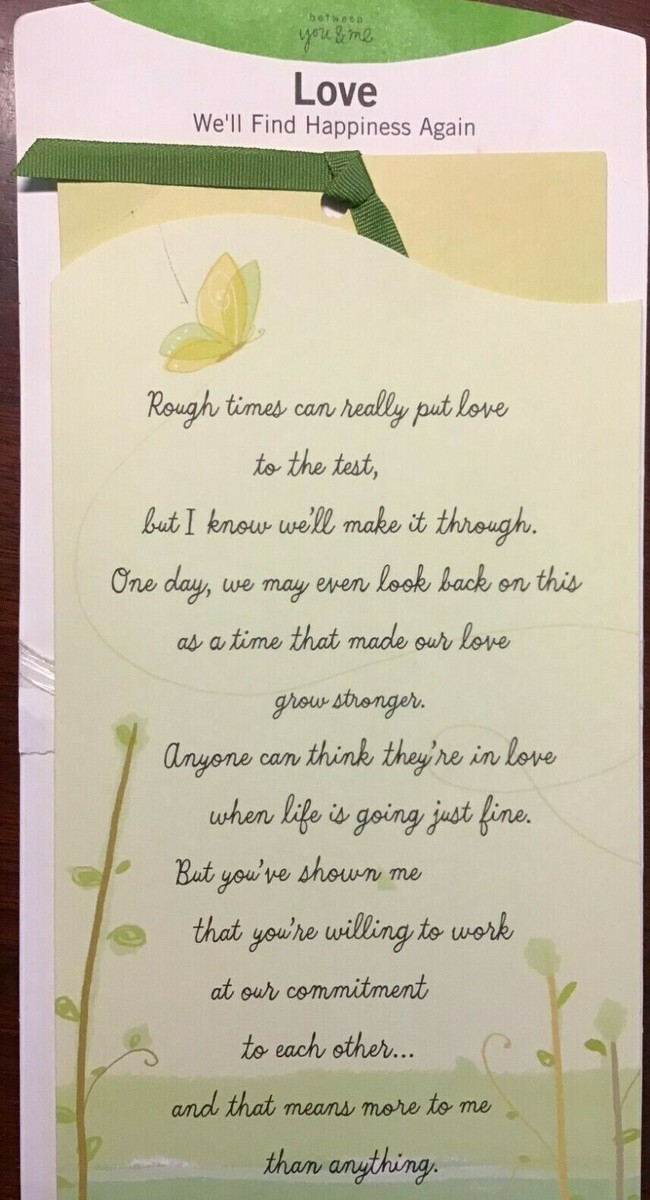 between
you & me
Love
We'll Find Happiness Again
Rough times can really put love
to the test,
but I know we'll make it through.
One day, we may even look back on this
as a time that made our love
grow stronger.
Anyone can think they're in love
when life is going just fine.
But you've shown me
that you're willing to work
at our commitment
to each other...
and that means more to me
than anything.